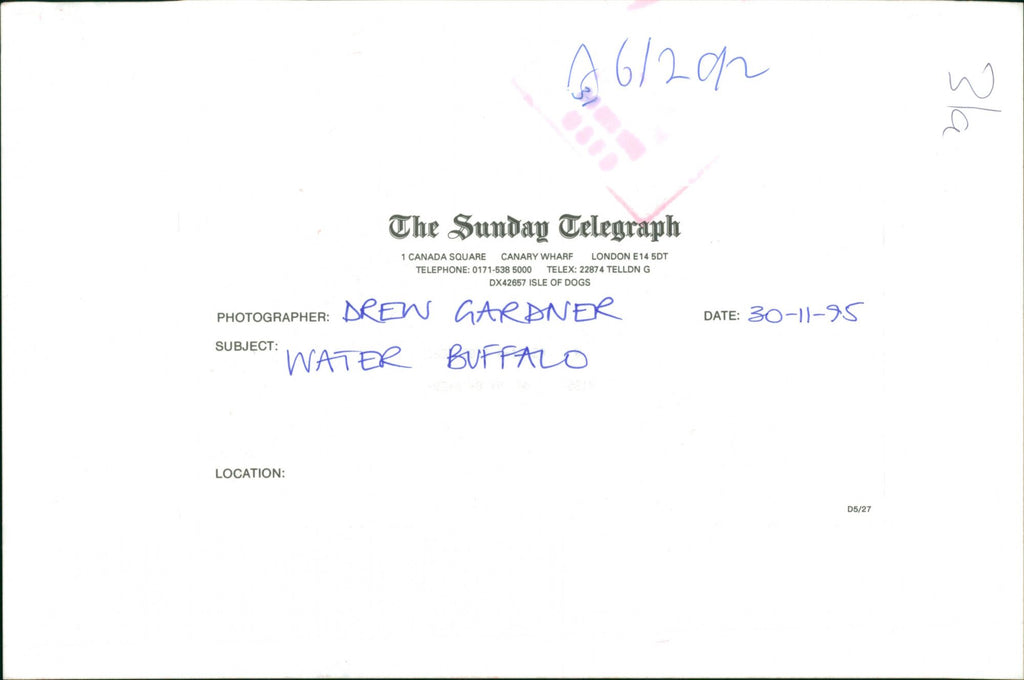 The Sunday Telegraph
1 CANADA SQUARE CANARY WHARF LONDON E14 5DT
TELEPHONE: 0171-538 5000 TELEX: 22874 TELLDN G
DX42657 ISLE OF DOGS
PHOTOGRAPHER: DREW GARDNER DATE: 30-11-95
SUBJECT: WATER BUFFALO
LOCATION:
D5/27